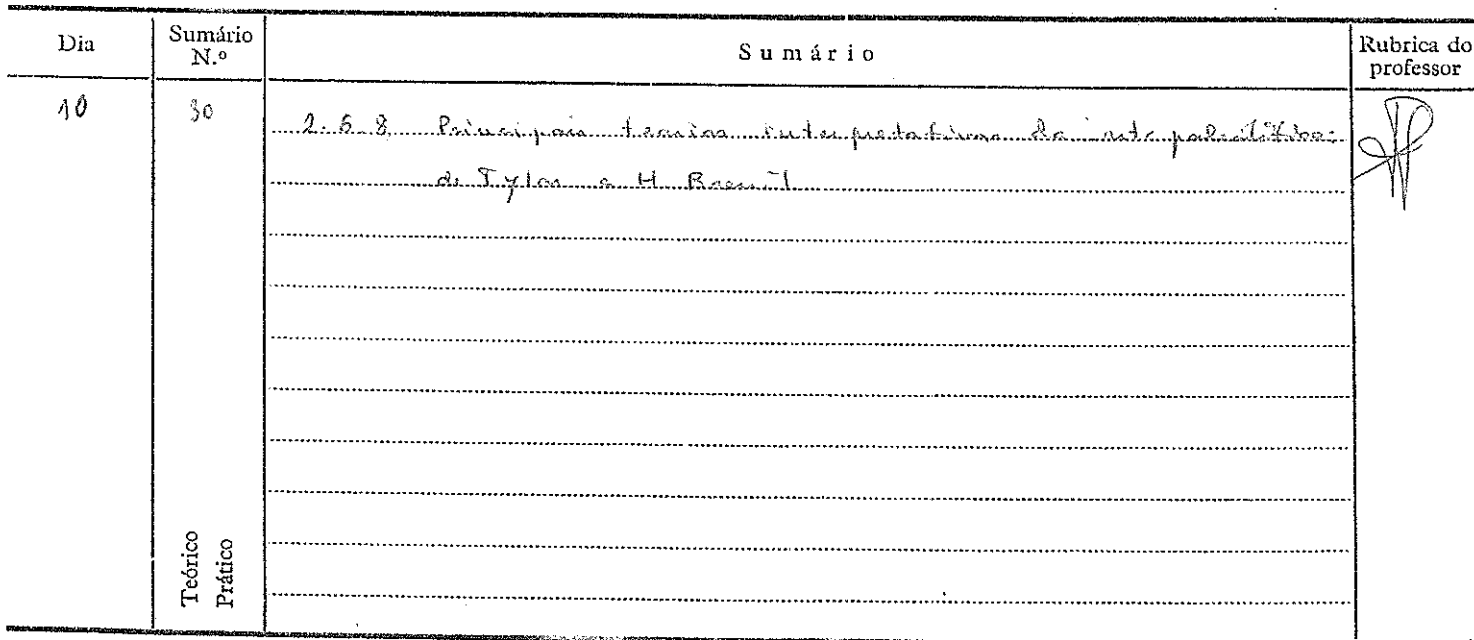 Dia
Sumário
N.º
Sumário
Rubrica do
professor
10
30
2.6.8 Principais teorias interpretativas da arte paleolítica:
de Tylor a H. Breuil
Teórico
Prático